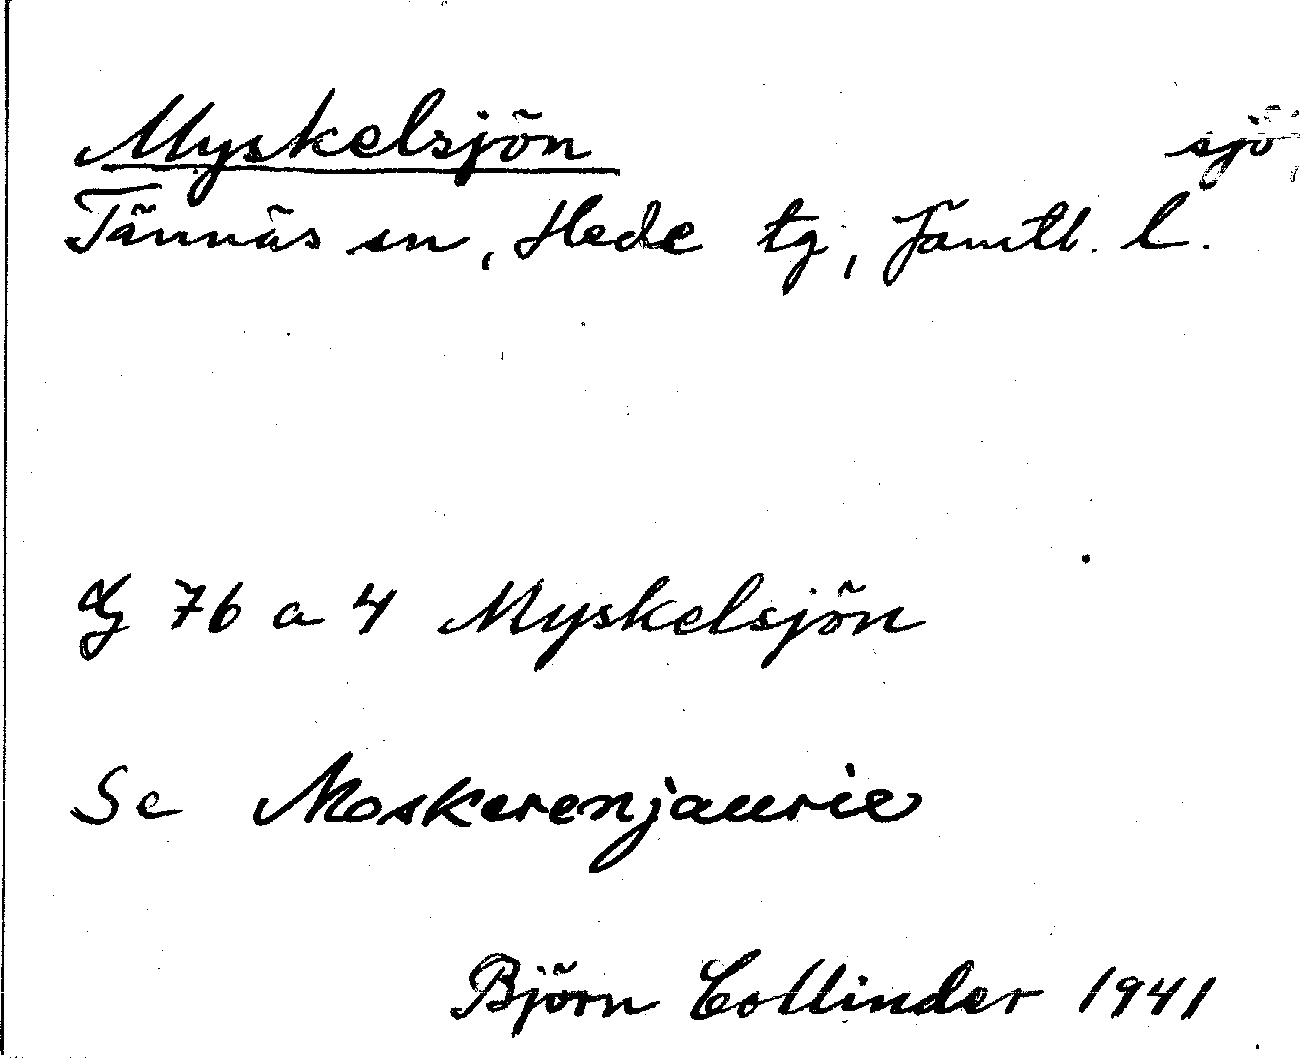 Myskelsjön sjö
Tännäs sn, Hede tg, Jämtl. l.
G 76 a 4 Myskelsjön
Se Moskerenjaurie
Björn Collinder 1941